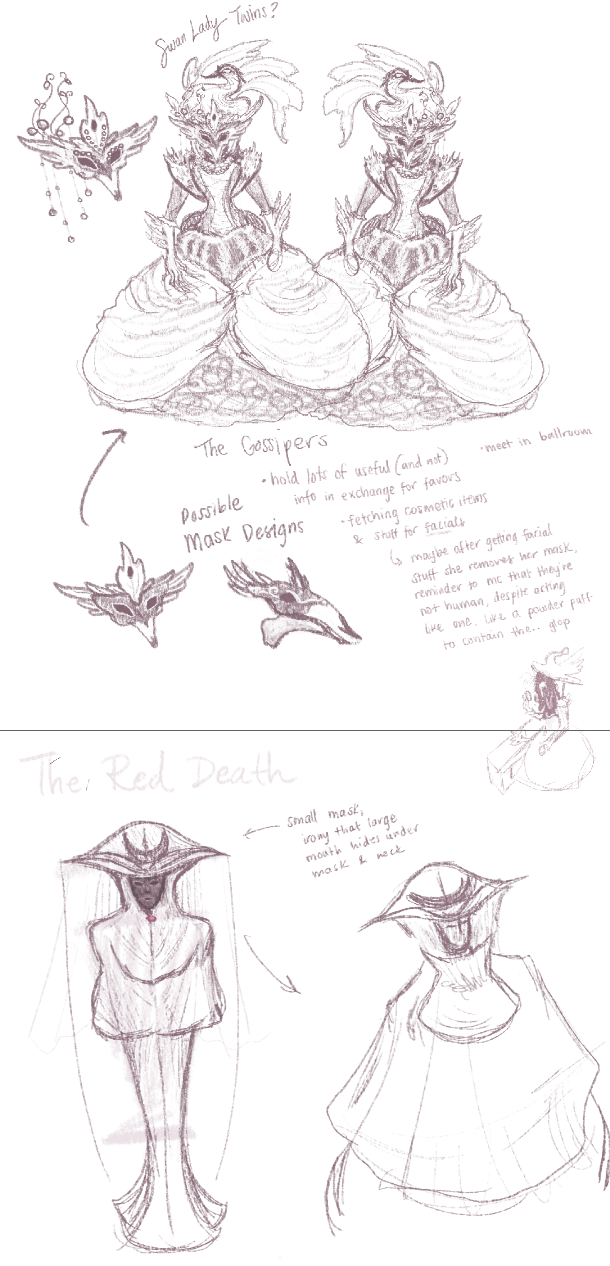 Swan Lady Twins?
The Gossipers
• hold lots of useful (and not)
info in exchange for favors
• meet in ballroom
• fetching cosmetic items
& stuff for facials
↳ maybe after getting facial
stuff she removes her mask,
reminder to mc that they're
not human, despite acting
like one. like a powder puff
to contain the.. glop
Possible
Mask Designs
The Red Death
small mask,
irony that large
mouth hides under
mask & neck